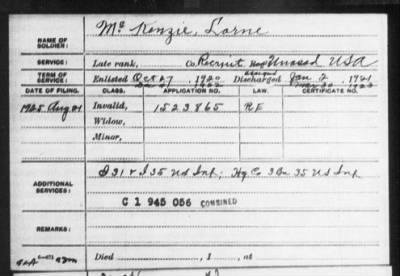 NAME OF SOLDIER: McKenzie, Lorne
SERVICE: Late rank, Co. Recruit Reg Unassd USA
TERM OF SERVICE: Enlisted Oct 27, 1920 Discharged Jan 2, 1921
1922 1923
DATE OF FILING. CLASS. APPLICATION NO. LAW. CERTIFICATE NO.
1925 Aug 21 Invalid, 1523865 RE
Widow,
Minor,
ADDITIONAL SERVICES: I 31 & I 35 US Inf; Hq Co 3 Bn 35 US Inf
C 1 945 056 COMBINED
REMARKS:
Died , 1 , at